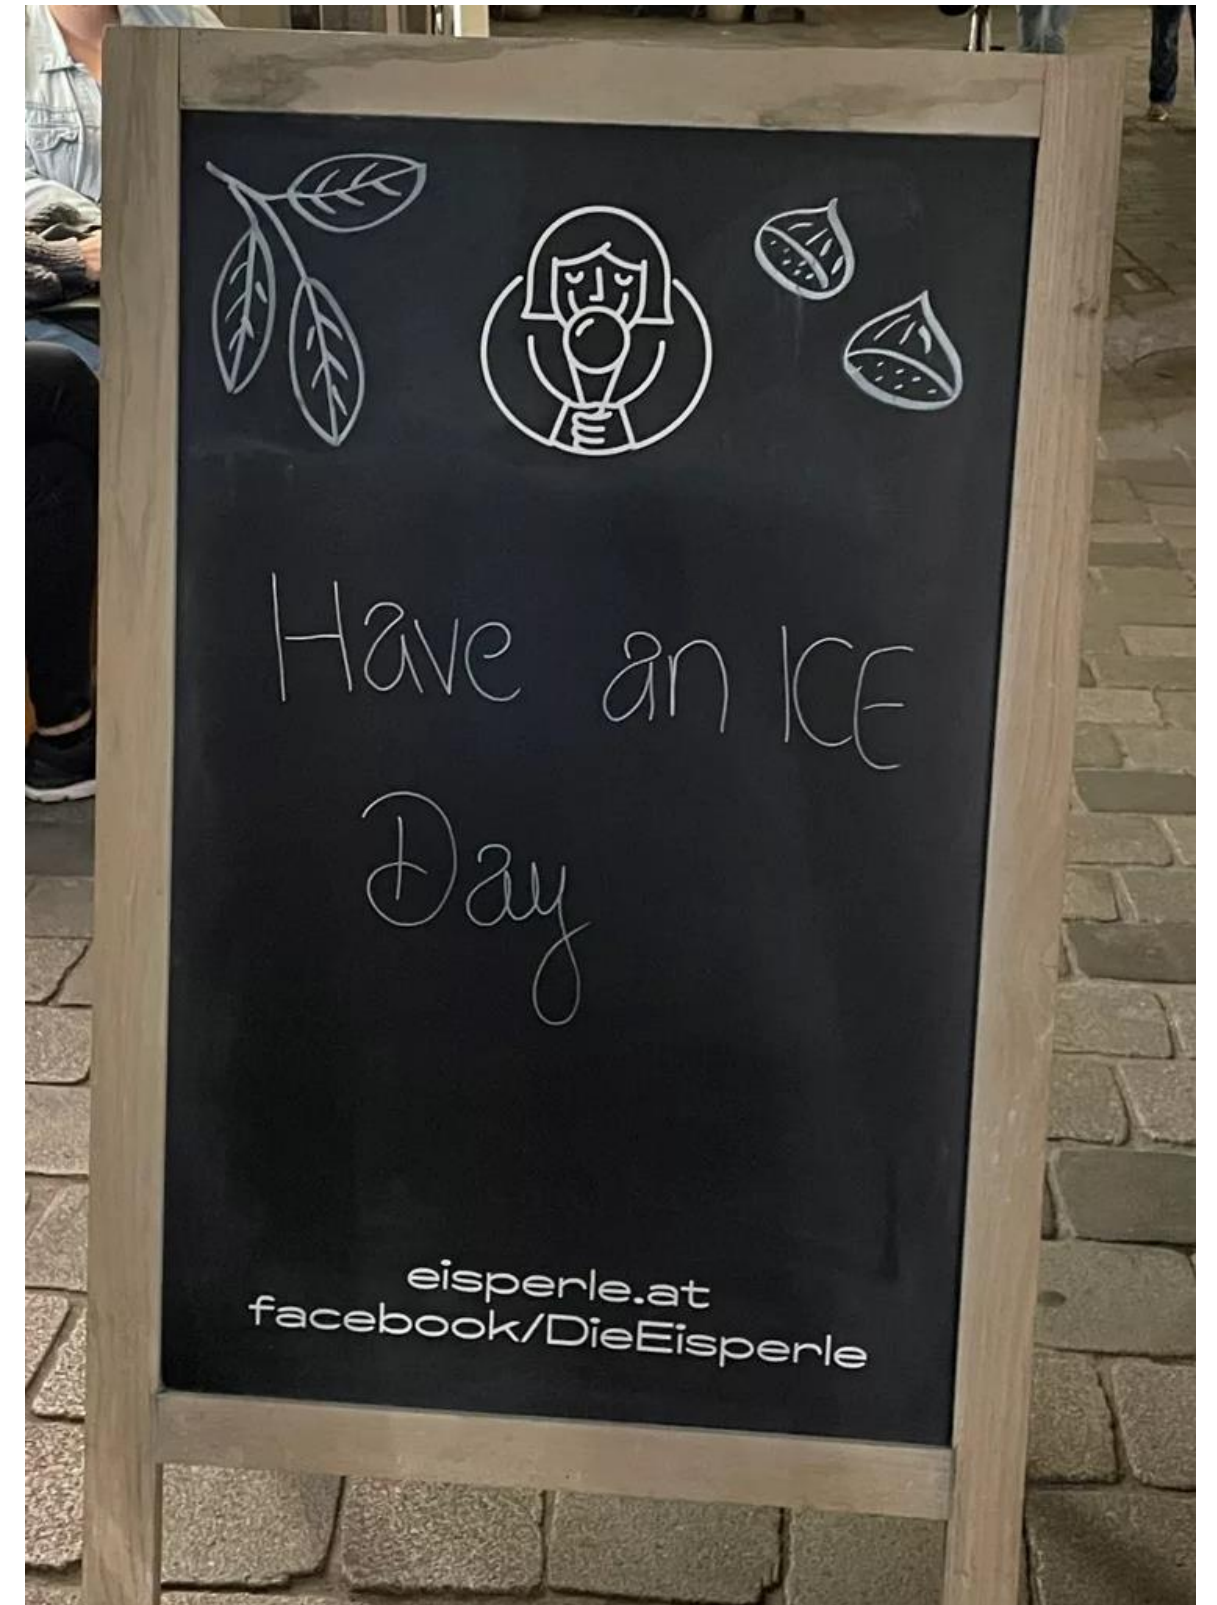 Have an ICE
Day
eisperle.at
facebook/DieEisperle